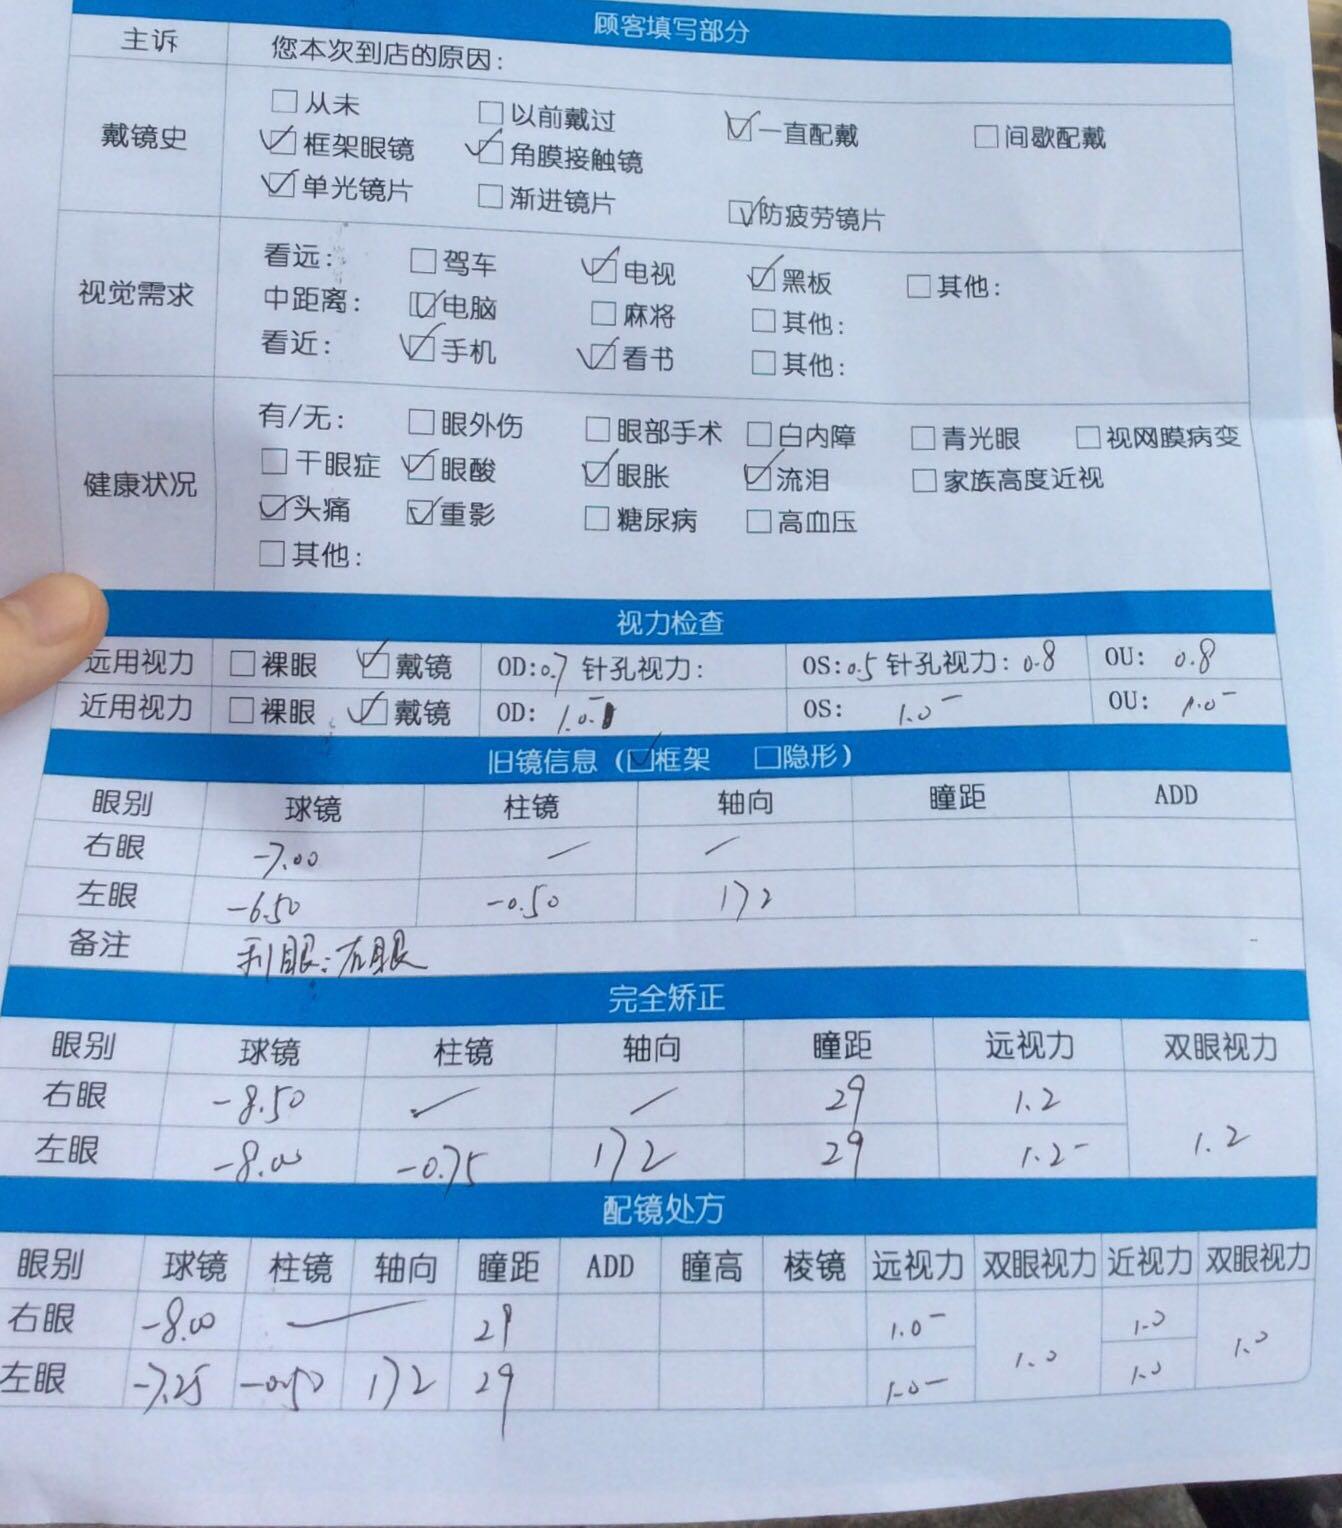 顾客填写部分
主诉 您本次到店的原因：
戴镜史 □从未 □以前戴过 ☑一直配戴 □间歇配戴
☑框架眼镜 ☑角膜接触镜
☑单光镜片 □渐进镜片 ☑防疲劳镜片
视觉需求 看远： □驾车 ☑电视 ☑黑板 □其他：
中距离： ☑电脑 □麻将 □其他：
看近： ☑手机 ☑看书 □其他：
健康状况 有/无： □眼外伤 □眼部手术 □白内障 □青光眼 □视网膜病变
□干眼症 ☑眼酸 ☑眼胀 ☑流泪 □家族高度近视
☑头痛 ☑重影 □糖尿病 □高血压
□其他：
视力检查
远用视力 □裸眼 ☑戴镜 OD:0.7 针孔视力： OS:0.5 针孔视力：0.8 OU: 0.8
近用视力 □裸眼 ☑戴镜 OD: 1.0⁻ OS: 1.0⁻ OU: 1.0⁻
旧镜信息（☑框架 □隐形）
眼别 球镜 柱镜 轴向 瞳距 ADD
右眼 -7.00 / /
左眼 -6.50 -0.50 172
备注 利眼：右眼
完全矫正
眼别 球镜 柱镜 轴向 瞳距 远视力 双眼视力
右眼 -8.50 / / 29 1.2
左眼 -8.00 -0.75 172 29 1.2⁻ 1.2
配镜处方
眼别 球镜 柱镜 轴向 瞳距 ADD 瞳高 棱镜 远视力 双眼视力 近视力 双眼视力
右眼 -8.00 / 29 1.0⁻ 1.0
左眼 -7.25 -0.50 172 29 1.0⁻ 1.0 1.0 1.0